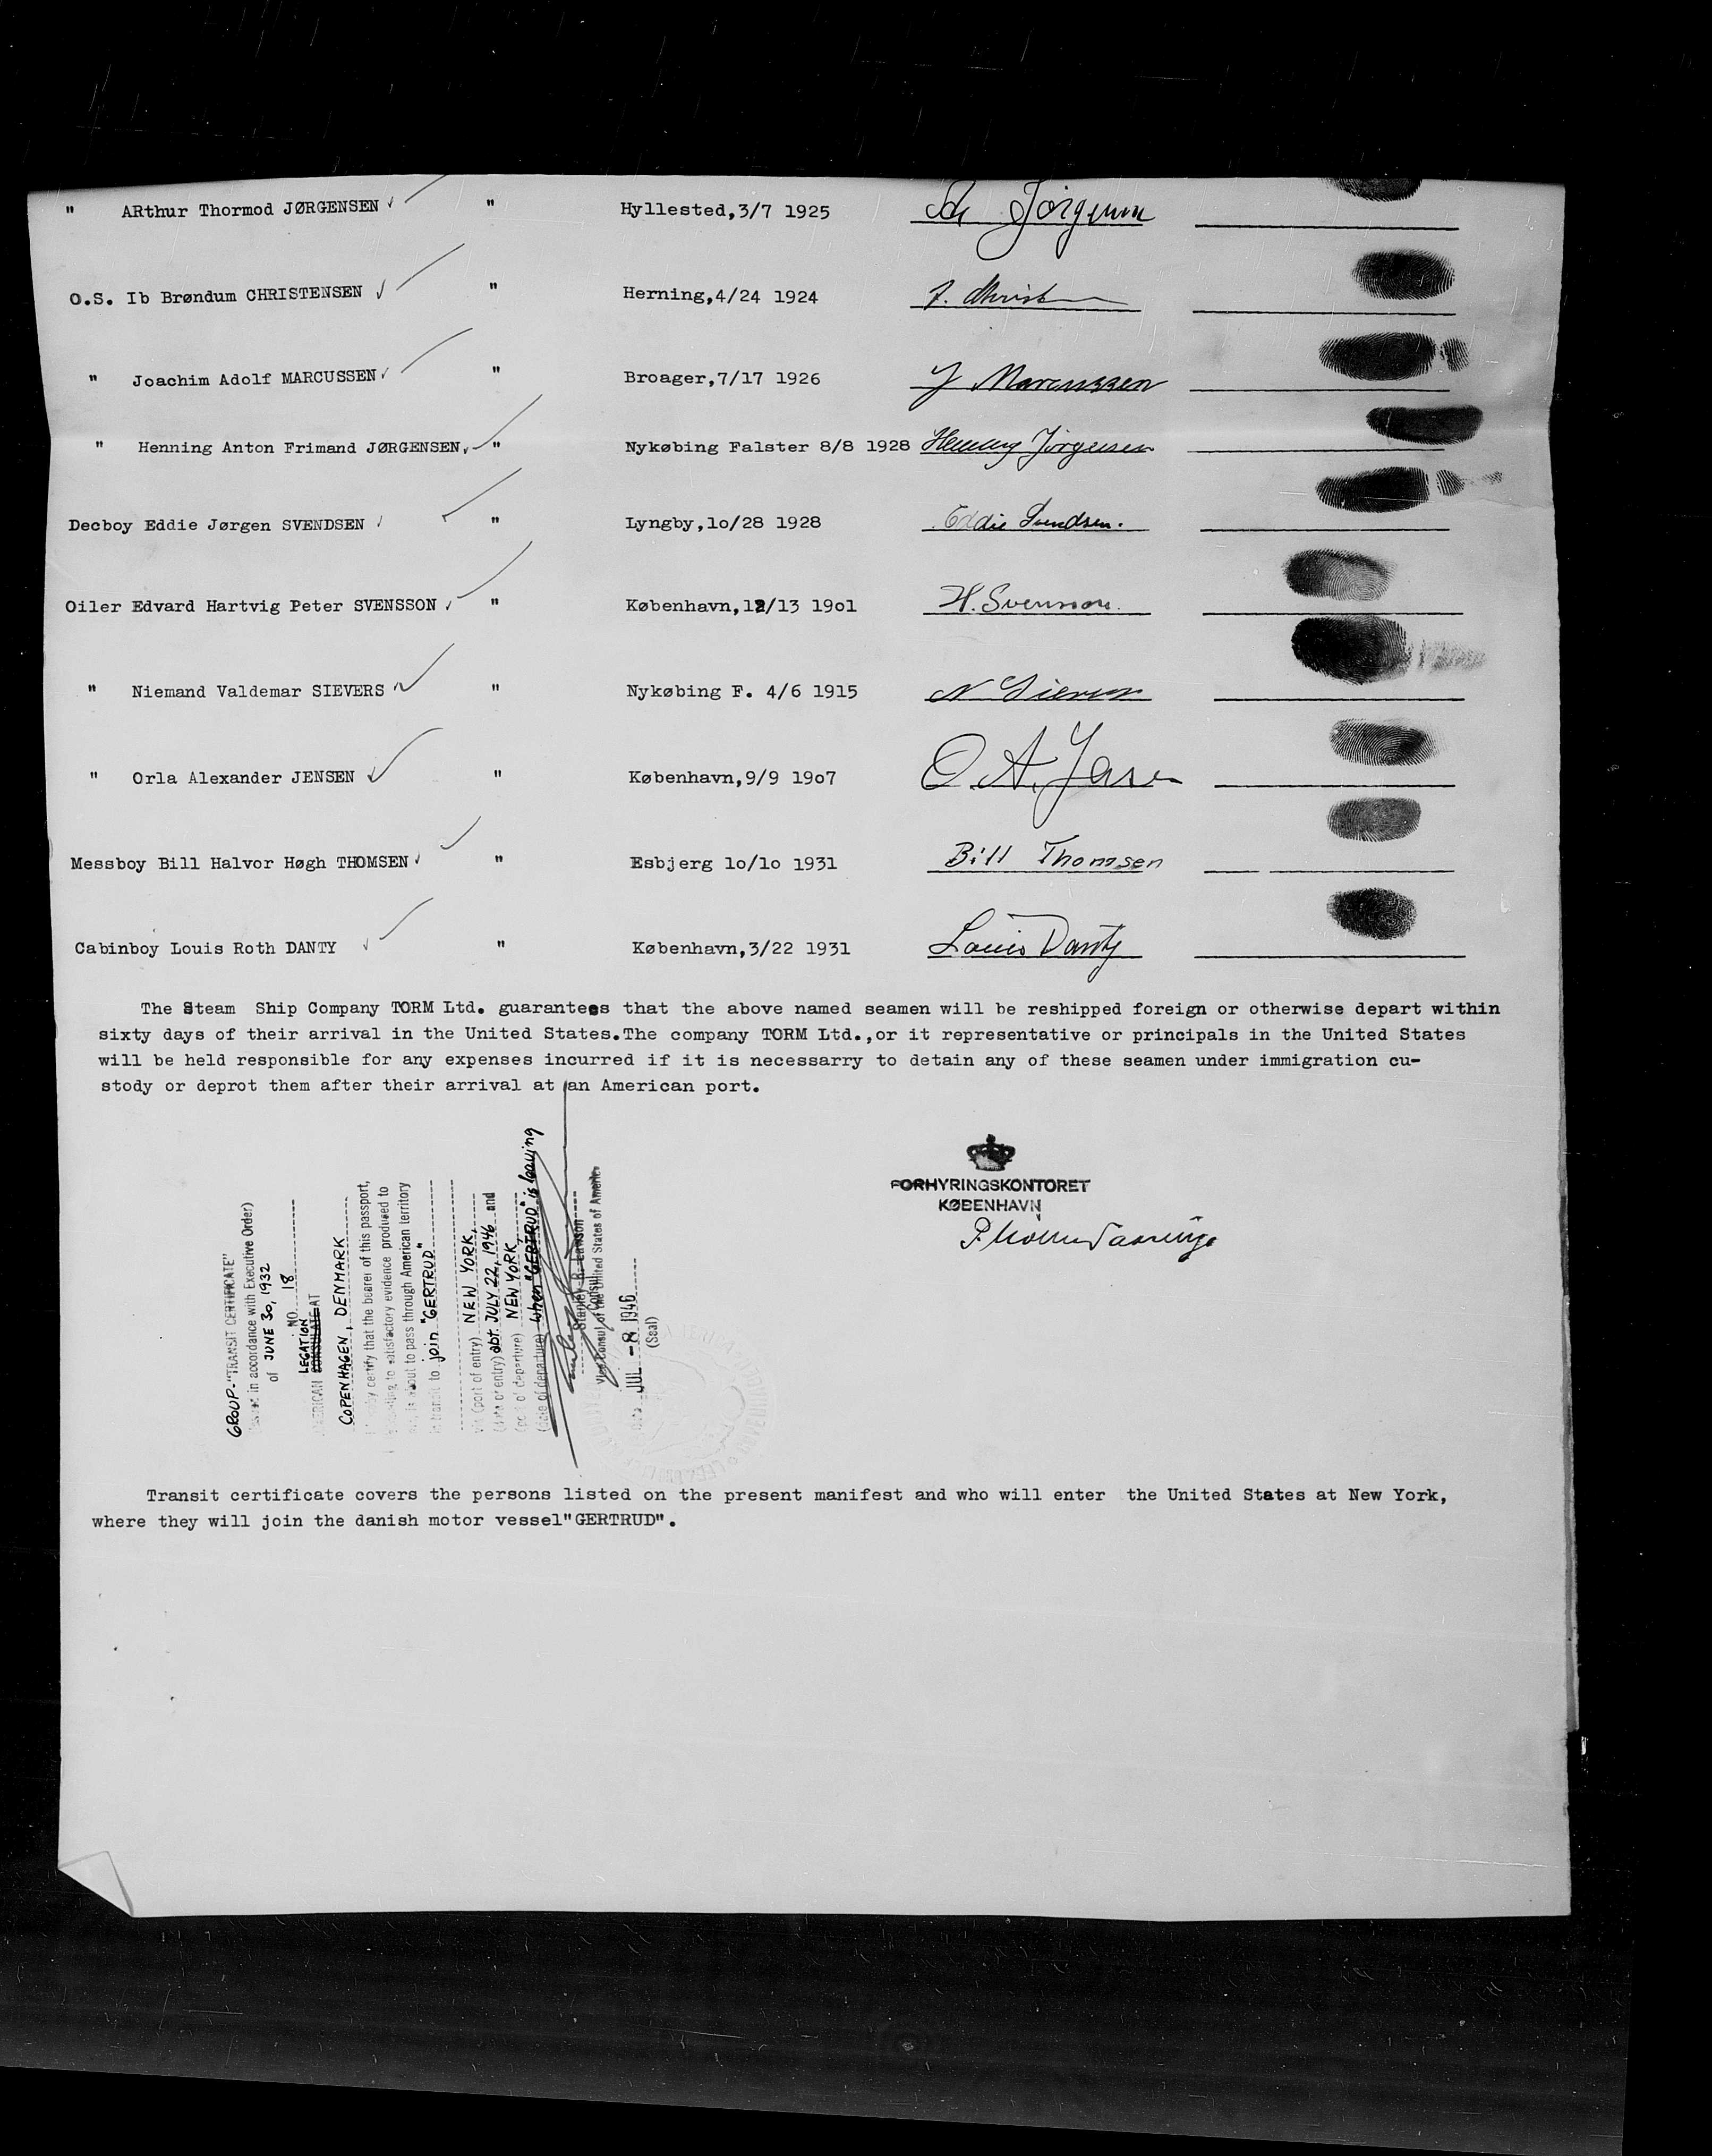 " ARthur Thormod JØRGENSEN " Hyllested,3/7 1925 Jørgensen
O.S. Ib Brøndum CHRISTENSEN " Herning,4/24 1924
" Joachim Adolf MARCUSSEN " Broager,7/17 1926 J Marcussen
" Henning Anton Frimand JØRGENSEN, " Nykøbing Falster 8/8 1928 Henning Jørgensen
Decboy Eddie Jørgen SVENDSEN " Lyngby,lo/28 1928 Eddie Svendsen.
Oiler Edvard Hartvig Peter SVENSSON " København,12/13 19ol H. Svensson.
" Niemand Valdemar SIEVERS " Nykøbing F. 4/6 1915 N Sievers
" Orla Alexander JENSEN " København,9/9 19o7 O. A. Jensen
Messboy Bill Halvor Høgh THOMSEN " Esbjerg lo/lo 1931 Bill Thomsen
Cabinboy Louis Roth DANTY " København,3/22 1931 Louis Danty
The Steam Ship Company TORM Ltd. guarantees that the above named seamen will be reshipped foreign or otherwise depart within
sixty days of their arrival in the United States.The company TORM Ltd.,or it representative or principals in the United States
will be held responsible for any expenses incurred if it is necessarry to detain any of these seamen under immigration cu-
stody or deprot them after their arrival at an American port.
GROUP-"TRANSIT CERTIFICATE"
(Issued in accordance with Executive Order)
of JUNE 30, 1932
NO. 18
LEGATION
AMERICAN CONSULATE AT
COPENHAGEN, DENMARK
I hereby certify that the bearer of this passport,
according to satisfactory evidence produced to
me, is about to pass through American territory
in transit to join "GERTRUD"
via (port of entry) NEW YORK,
(date of entry) abt. JULY 22, 1946 and
(port of departure) NEW YORK,
(date of departure) when "GERTRUD" is leaving
Stanley R. Lawson
Consul
Vice Consul of the United States of America
Date JUL -8 1946
(Seal)
FORHYRINGSKONTORET
KØBENHAVN
Transit certificate covers the persons listed on the present manifest and who will enter the United States at New York,
where they will join the danish motor vessel"GERTRUD".